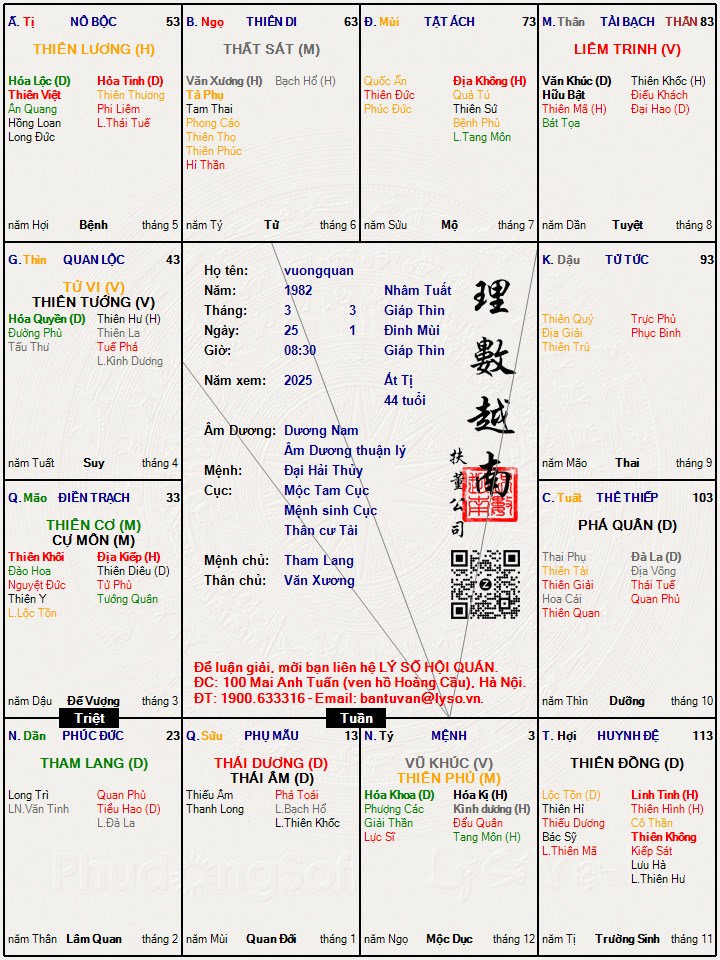 Ấ. Tị NÔ BỘC 53
THIÊN LƯƠNG (H)
Hóa Lộc (D) Hỏa Tinh (D)
Thiên Việt Thiên Thương
Ân Quang Phi Liêm
Hồng Loan L.Thái Tuế
Long Đức
năm Hợi Bệnh tháng 5
B. Ngọ THIÊN DI 63
THẤT SÁT (M)
Văn Xương (H) Bạch Hổ (H)
Tả Phụ
Tam Thai
Phong Cáo
Thiên Thọ
Thiên Phúc
Hỉ Thần
năm Tý Tử tháng 6
Đ. Mùi TẬT ÁCH 73
Quốc Ấn Địa Không (H)
Thiên Đức Quả Tú
Phúc Đức Thiên Sứ
Bệnh Phù
L.Tang Môn
năm Sửu Mộ tháng 7
M. Thân TÀI BẠCH THÂN 83
LIÊM TRINH (V)
Văn Khúc (D) Thiên Khốc (H)
Hữu Bật Điếu Khách
Thiên Mã (H) Đại Hao (D)
Bát Tọa
năm Dần Tuyệt tháng 8
G. Thìn QUAN LỘC 43
TỬ VI (V)
THIÊN TƯỚNG (V)
Hóa Quyền (D) Thiên Hư (H)
Đường Phù Thiên La
Tấu Thư Tuế Phá
L.Kình Dương
năm Tuất Suy tháng 4
Họ tên: vuongquan
Năm: 1982 Nhâm Tuất
Tháng: 3 3 Giáp Thìn
Ngày: 25 1 Đinh Mùi
Giờ: 08:30 Giáp Thìn
Năm xem: 2025 Ất Tị
44 tuổi
Âm Dương: Dương Nam
Âm Dương thuận lý
Mệnh: Đại Hải Thủy
Cục: Mộc Tam Cục
Mệnh sinh Cục
Thân cư Tài
Mệnh chủ: Tham Lang
Thân chủ: Văn Xương
理數越南
扶董公司
Để luận giải, mời bạn liên hệ LÝ SỐ HỘI QUÁN.
ĐC: 100 Mai Anh Tuấn (ven hồ Hoàng Cầu), Hà Nội.
ĐT: 1900.633316 - Email: bantuvan@lyso.vn.
K. Dậu TỬ TỨC 93
Thiên Quý Trực Phù
Địa Giải Phục Binh
Thiên Trù
năm Mão Thai tháng 9
Q. Mão ĐIỀN TRẠCH 33
THIÊN CƠ (M)
CỰ MÔN (M)
Thiên Khôi Địa Kiếp (H)
Đào Hoa Thiên Diêu (D)
Nguyệt Đức Tử Phù
Thiên Y Tướng Quân
L.Lộc Tồn
năm Dậu Đế Vượng tháng 3
C. Tuất THÊ THIẾP 103
PHÁ QUÂN (D)
Thai Phụ Đà La (D)
Thiên Tài Địa Võng
Thiên Giải Thái Tuế
Hoa Cái Quan Phủ
Thiên Quan
năm Thìn Dưỡng tháng 10
Triệt Tuần
N. Dần PHÚC ĐỨC 23
THAM LANG (D)
Long Trì Quan Phù
LN.Văn Tinh Tiểu Hao (D)
L.Đà La
năm Thân Lâm Quan tháng 2
Q. Sửu PHỤ MẪU 13
THÁI DƯƠNG (D)
THÁI ÂM (D)
Thiếu Âm Phá Toái
Thanh Long L.Bạch Hổ
L.Thiên Khốc
năm Mùi Quan Đới tháng 1
N. Tý MỆNH 3
VŨ KHÚC (V)
THIÊN PHỦ (M)
Hóa Khoa (D) Hóa Kị (H)
Phượng Các Kình dương (H)
Giải Thần Đẩu Quân
Lực Sĩ Tang Môn (H)
năm Ngọ Mộc Dục tháng 12
T. Hợi HUYNH ĐỆ 113
THIÊN ĐỒNG (D)
Lộc Tồn (D) Linh Tinh (H)
Thiên Hỉ Thiên Hình (H)
Thiếu Dương Cô Thần
Bác Sỹ Thiên Không
L.Thiên Mã Kiếp Sát
Lưu Hà
L.Thiên Hư
năm Tị Trường Sinh tháng 11